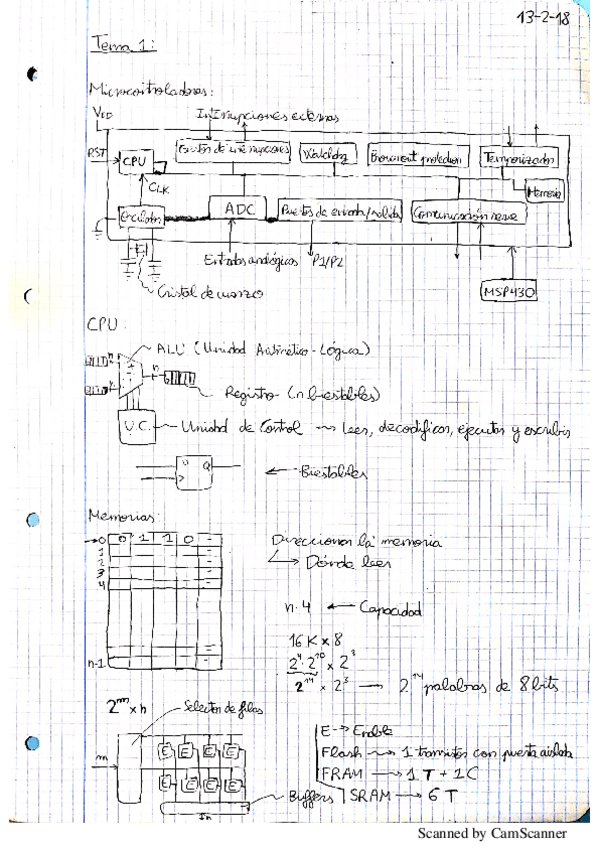 13-2-18
Tema 1:
Microcontroladores:
VCC
Interrupciones externas
RST
CPU
Gestor de interrupciones
Watchdog
Brownout protection
Temporizador
Memoria
CLK
Oscilador
ADC
Puertos de entrada/salida
Comunicación serie
Entradas analógicas
P1/P2
Cristal de cuarzo
MSP430
CPU:
ALU (Unidad Aritmético-Lógica)
n
n
Registro (n biestables)
U.C.
Unidad de Control → Leer, decodificar, ejecutar y escribir
D Q
← Biestables
Memorias:
→0 0 1 1 0
1
2
3
4
n-1
Direccionar la memoria
→ Dónde leer
n·4 ← Capacidad
16 K x 8
2⁴·2¹⁰ x 2³
2¹⁴ x 2³ → 2¹⁴ palabras de 8 bits
2ᵐ x n
Selector de filas
m
E E E E
E E E E
Buffers
E → Enable
Flash → 1 transistor con puerta aislada
FRAM → 1 T + 1 C
SRAM → 6 T
Scanned by CamScanner